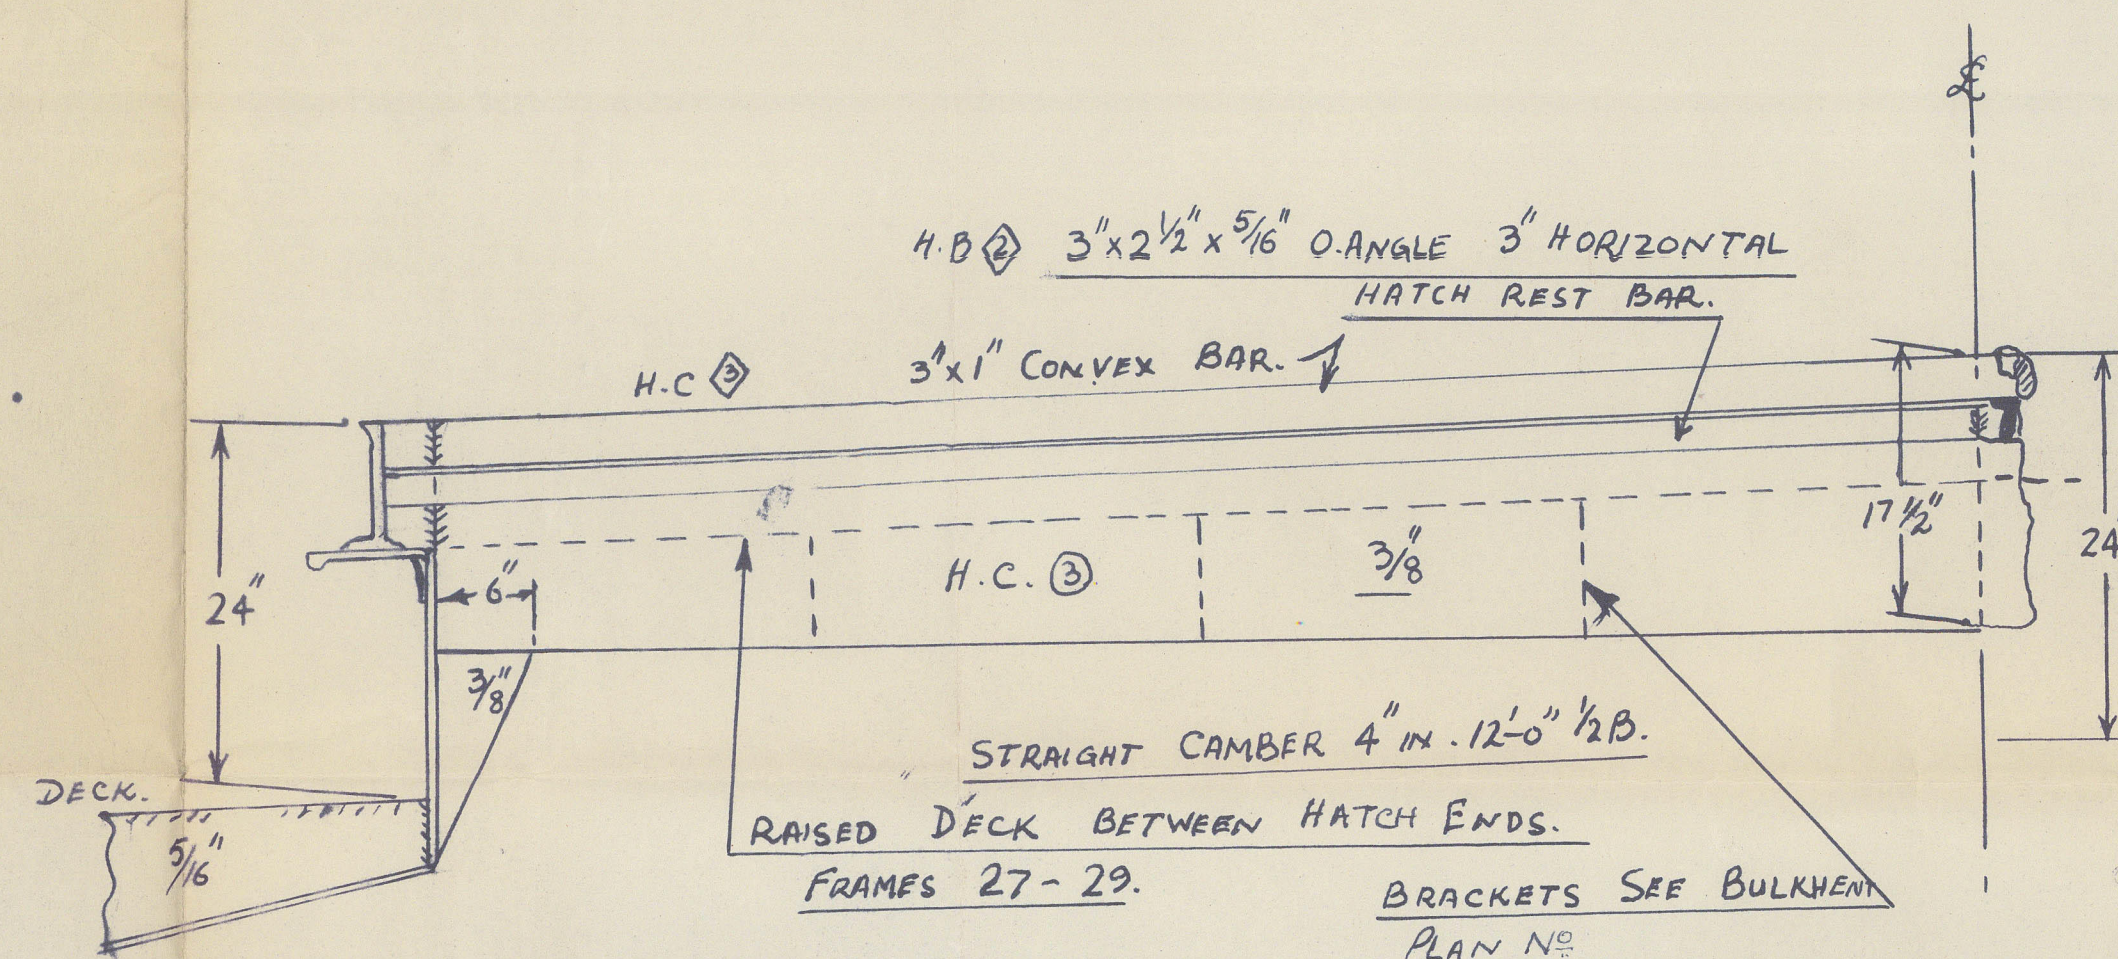 ℄
H.B 2 3"x2½"x5/16" O.ANGLE 3" HORIZONTAL
HATCH REST BAR.
H.C 3 3"x1" CONVEX BAR.
17½"
24"
24
6"
H.C. 3
3/8"
3/8"
STRAIGHT CAMBER 4" IN. 12'-0" ½B.
DECK.
5/16"
RAISED DECK BETWEEN HATCH ENDS.
FRAMES 27-29.
BRACKETS SEE BULKHEAT
PLAN Nº